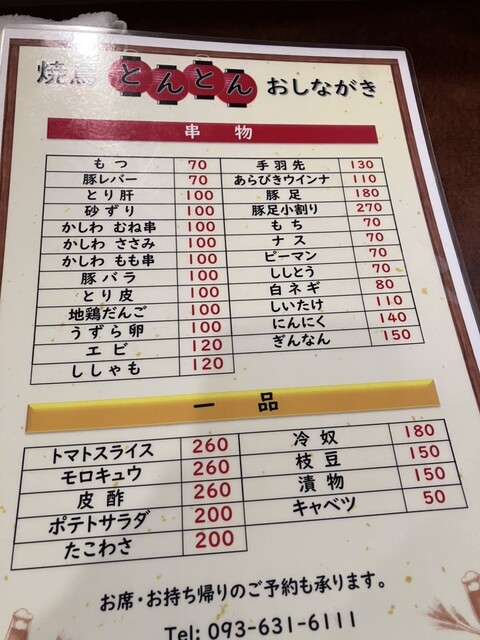 焼鳥 とんとん おしながき
串物
もつ 70
豚レバー 70
とり肝 100
砂ずり 100
かしわ むね串 100
かしわ ささみ 100
かしわ もも串 100
豚バラ 100
とり皮 100
地鶏だんご 100
うずら卵 100
エビ 120
ししゃも 120
手羽先 130
あらびきウインナ 110
豚足 180
豚足小割り 270
もち 70
ナス 70
ピーマン 70
ししとう 70
白ネギ 80
しいたけ 110
にんにく 140
ぎんなん 150
一品
トマトスライス 260
モロキュウ 260
皮酢 260
ポテトサラダ 200
たこわさ 200
冷奴 180
枝豆 150
漬物 150
キャベツ 50
お席・お持ち帰りのご予約も承ります。
Tel: 093-631-6111